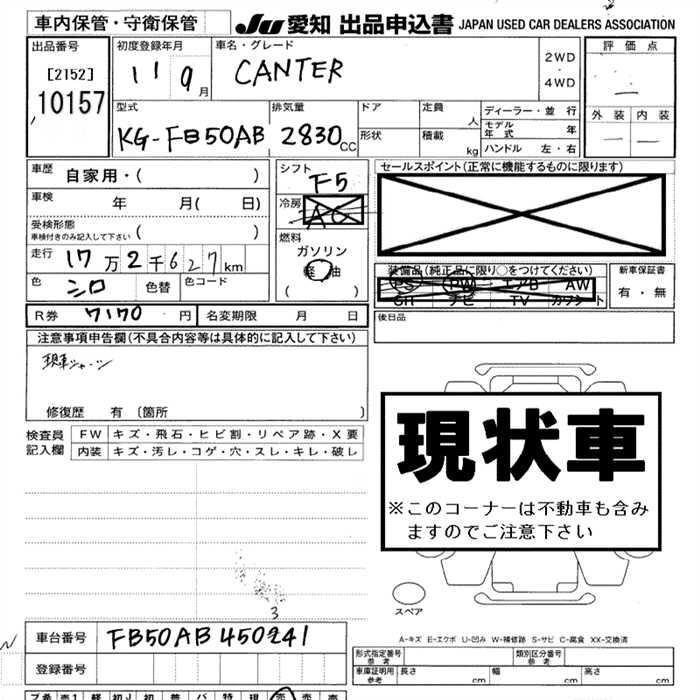 車内保管・守衛保管
JU 愛知 出品申込書 JAPAN USED CAR DEALERS ASSOCIATION
出品番号
[2152]
10157
初度登録年月
11 9月
車名・グレード
CANTER
2WD
・
4WD
評価点
外装 内装
型式
KG-FB50AB
排気量
2830 CC
ドア
形状
定員
人
積載
kg
ディーラー・並行
モデル年式 年
ハンドル 左・右
車歴 自家用・( )
車検 年 月( 日)
受検形態
車検付きのみ記入して下さい ( )
走行 17万2千627km
色 シロ 色替 色コード
シフト
F5
冷房
AC
燃料
ガソリン
軽油
( )
セールスポイント(正常に機能するものに限ります)
装備品(純正品に限り○をつけてください)
PS PW エアB AW
SR ナビ TV カワシート
新車保証書
有・無
R券 7170 円 名変期限 月 日
後日品
注意事項申告欄(不具合内容等は具体的に記入して下さい)
現車
修復歴 有 〔箇所 〕
検査員記入欄
FW キズ・飛石・ヒビ割・リペア跡・X要
内装 キズ・汚レ・コゲ・穴・スレ・キレ・破レ
現状車
※このコーナーは不動車も含み
ますのでご注意下さい
3
スペア
A-キズ E-エクボ U-凹み W-補修跡 S-サビ C-腐食 XX-交換済
車台番号 FB50AB450241
登録番号
形式指定番号 参考
類別区分番号 参考
車庫証明用 参考 長さ cm 幅 cm 高さ cm